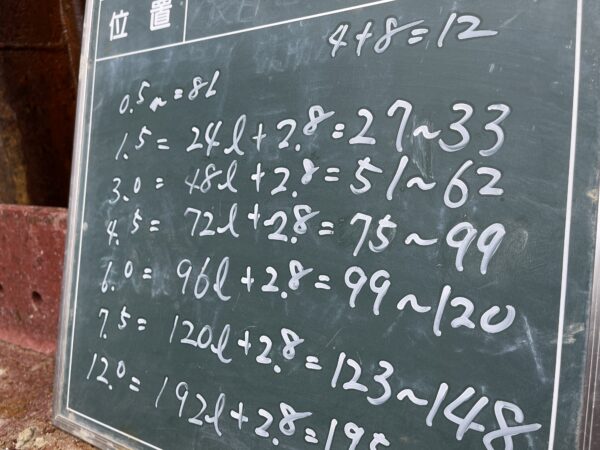 位置
4+8=12
0.5m=8l
1.5=24l+2.8=27~33
3.0=48l+2.8=51~62
4.5=72l+2.8=75~99
6.0=96l+2.8=99~120
7.5=120l+2.8=123~148
12.0=192l+2.8=195